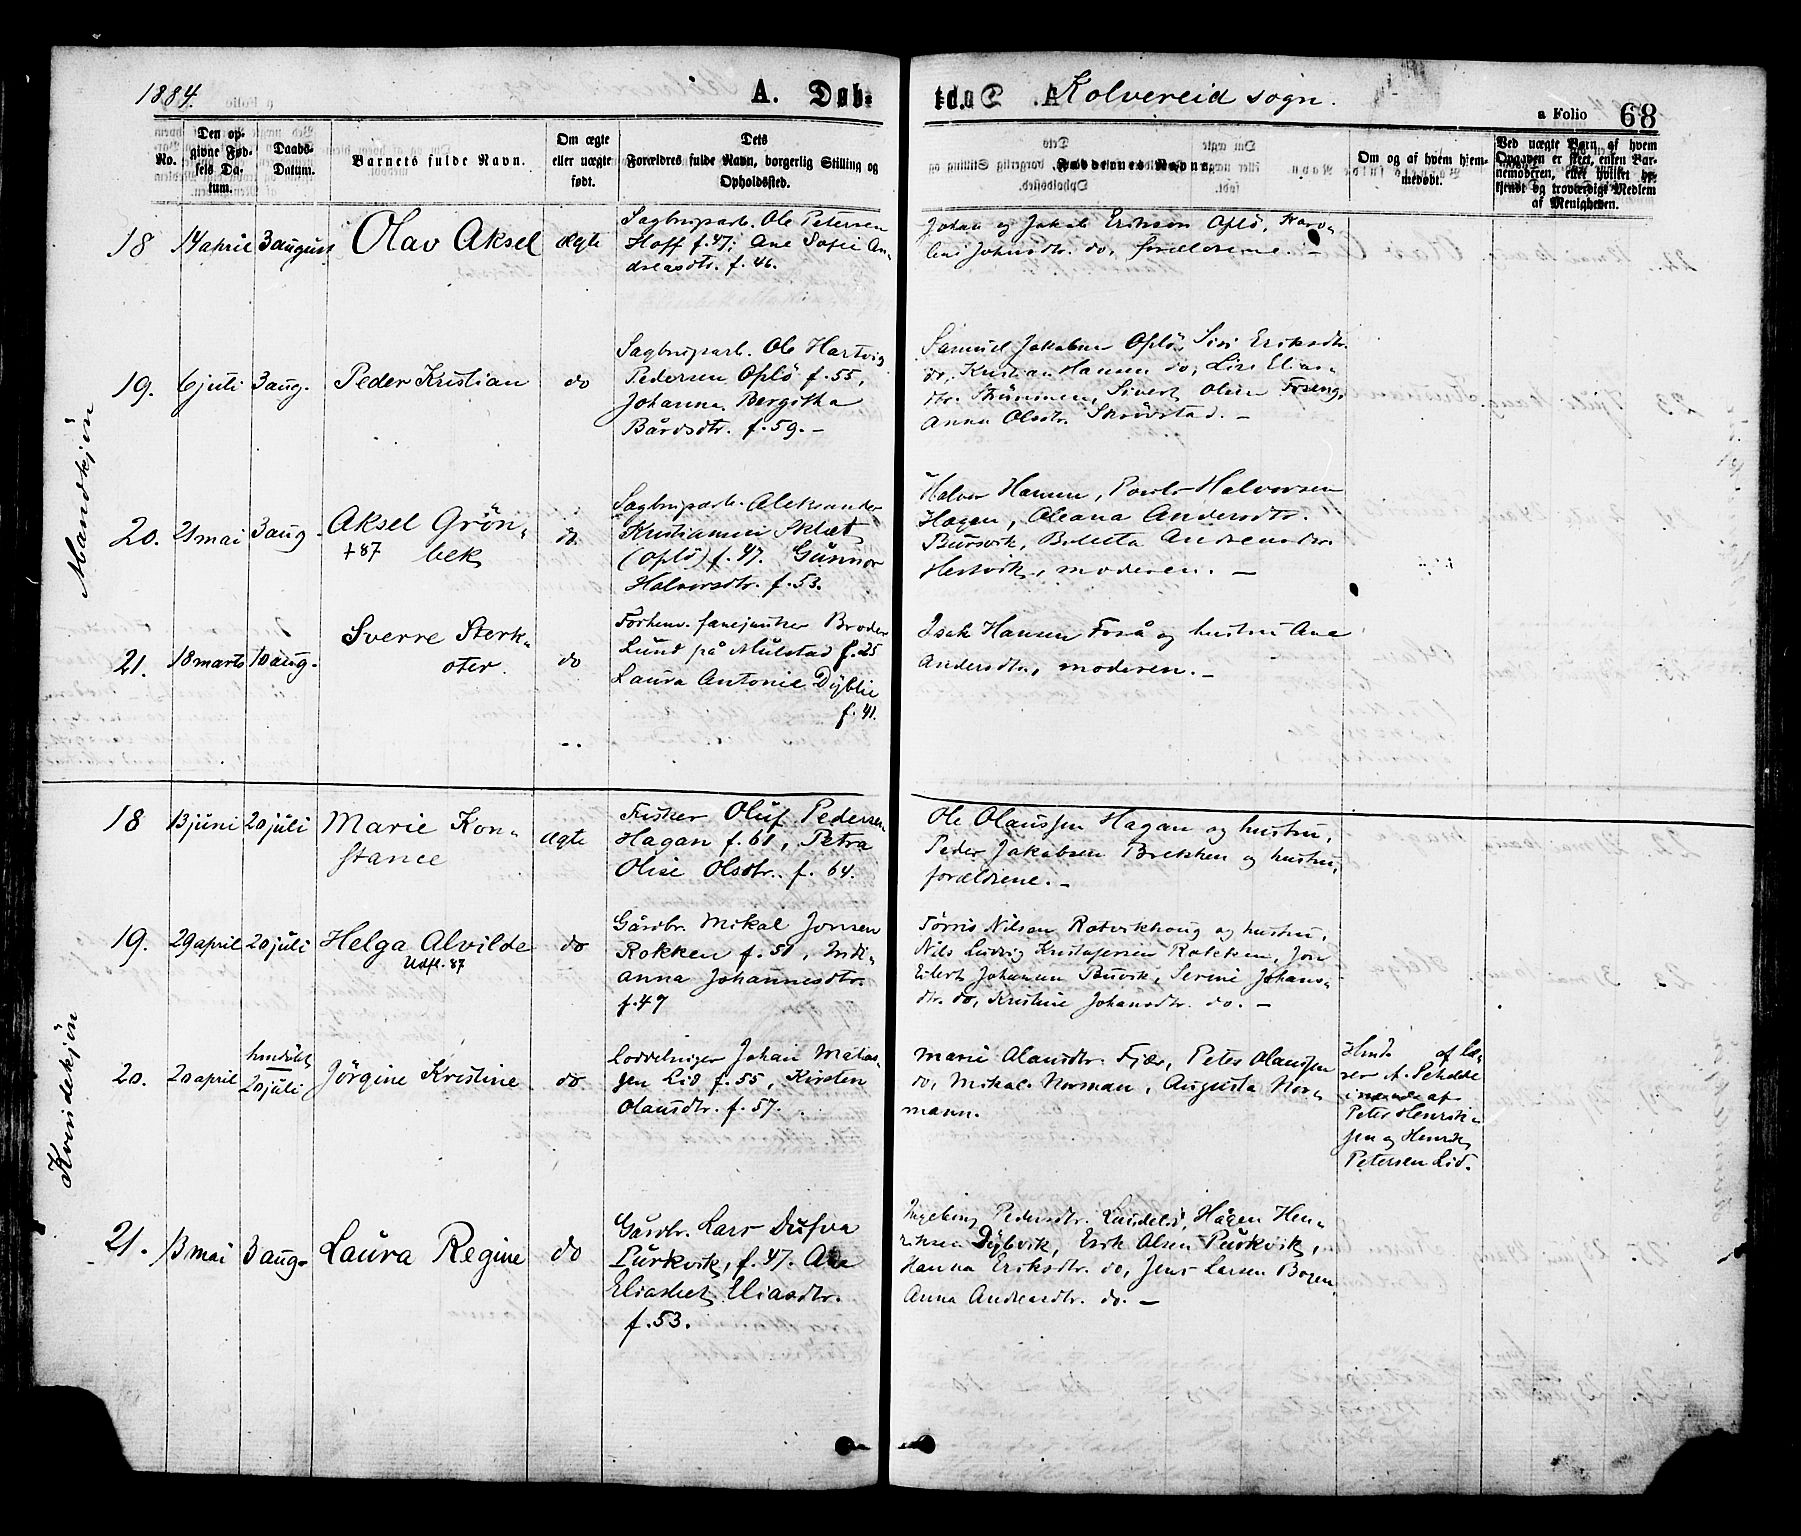 1884.
A. Døb-
Kolvereid sogn.
a Folio 68
No.
Den op-
givne Fød-
sels Da-
tum.
Daabs-
Datum.
Barnets fulde Navn.
Om ægte
eller uægte
født.
Dets
Forældres fulde Navn, borgerlig Stilling og
Opholdssted.
Faddernes Navn.
Om og af hvem hjem-
medøbt.
Ved uægte Barn, af hvem
Opgaven er skeet, enten Bar-
nemoderen, eller hvilket be-
kjendt og troværdigt Medlem
af Menigheden.
Mandskjön
18
14 april
3 august
Olav Aksel
ægte
Sagbrugsarb. Ole Petersen
Hoff f. 47. Ane Sofie An-
dreasdtr. f. 46.
Johan og Jakob Erikson Oplö,
Johnsdtr. do, forældrene. -
19.
6 juli
3 aug.
Peder Kristian
do
Sagbrugsarb. Ole Hartvig
Pedersen Oplö f. 55,
Johanna Bergitha
Bårdsdtr. f. 59. -
Samuel Jakobsen Oplö, Siri Eriksdtr.
do, Kristian Hansen do, Lise Elias-
dtr. Strömmen, Sivert Olsen Foseng,
Anna Olsdtr. Skrödstad. -
20.
21 mai
3 aug.
Aksel Grön-
bek
+ 87
do.
Sagbrugsarb. Aleksander
Kristiansen Sklet
(Oplö) f. 47. Gunnor
Halvorsdtr. f. 53.
Halvor Hansen, Povel Halvorsen
Hagen, Oleana Andersdtr.
Bursvik, Andreasdtr.
Hestvik, moderen. -
21.
18 marts
10 aug.
Sverre Sterk-
oter.
do
Forhenv. fanejunker Broder
Lund på Mulstad f. 25
Laura Antonie Dyblie
f. 41.
Isak Hansen Foså og hustru Ane
Andersdtr., moderen. -
Kvindekjön
18
13 juni
20 juli
Marie Kon-
stance
ægte
Fisker Oluf Pedersen
Hagan f. 61, Petra
Olise Olsdtr. f. 64.
Ole Olaussen Hagan og hustru,
Peder Jakobsen Brekken og hustru,
forældrene. -
19.
29 april
20 juli
Helga Alvilde
Udfl. 87
do
Gårdbr. Mikal Jonsen
Rokken f. 51, Indi-
anna Johannesdtr.
f. 47
Törris Nilsen Rotvikhoug og hustru,
Nils Ludvig Kristofersen Rokken, Jon
Eilert Johansen Buvik, Serine Johans-
dtr. do, Kristine Johansdtr. do. -
20.
20 april
hmdöbt
20 juli
Jörgine Kristine
do.
Loddelniger Johan Matias-
sen Lid f. 55, Kirsten
Olausdtr. f. 57.
Marie Olausdtr. Fjær, Peter Olaussen
do, Mikal Norman, Augusta Nor-
mann.
Hmd. af læ-
rer A.
af
Peter Henrik-
sen og Henrik
Petersen Lid.
21.
13 mai
3 aug.
Laura Regine
do
Gårdbr. Lars Dufva
Purkvik, f. 47. Ane
Eliasbet Eliasdtr.
f. 53.
Ingeborg Pedersdtr. Hågen Hen-
riksen Dybvik, Erik Olsen Purkvik,
Hanna Eriksdtr. do, Jens Larsen Bogen,
Anna Andreasdtr. do. -